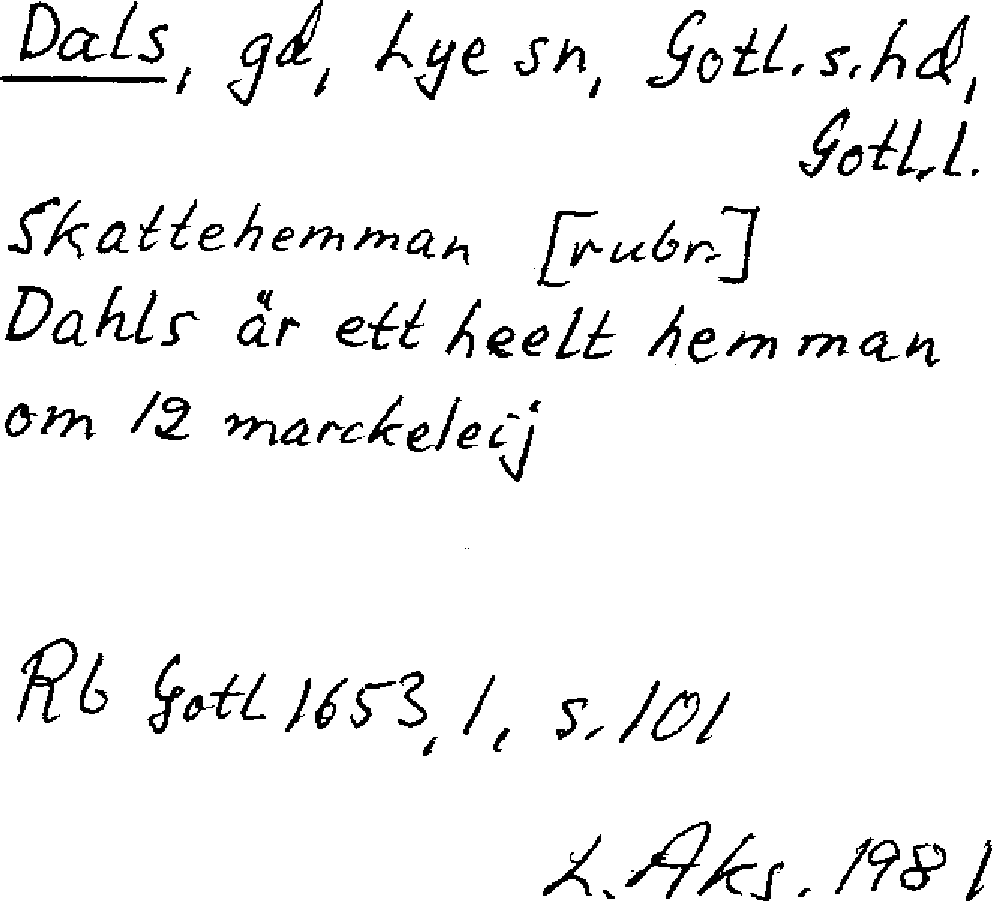 Dals, gd, Lye sn, Gotl. s. hd,
Gotl. l.
Skattehemman [rubr.]
Dahls är ett heelt hemman
om 12 marckeleij
Rb Gotl 1653, 1, s. 101
L. Aks. 1981